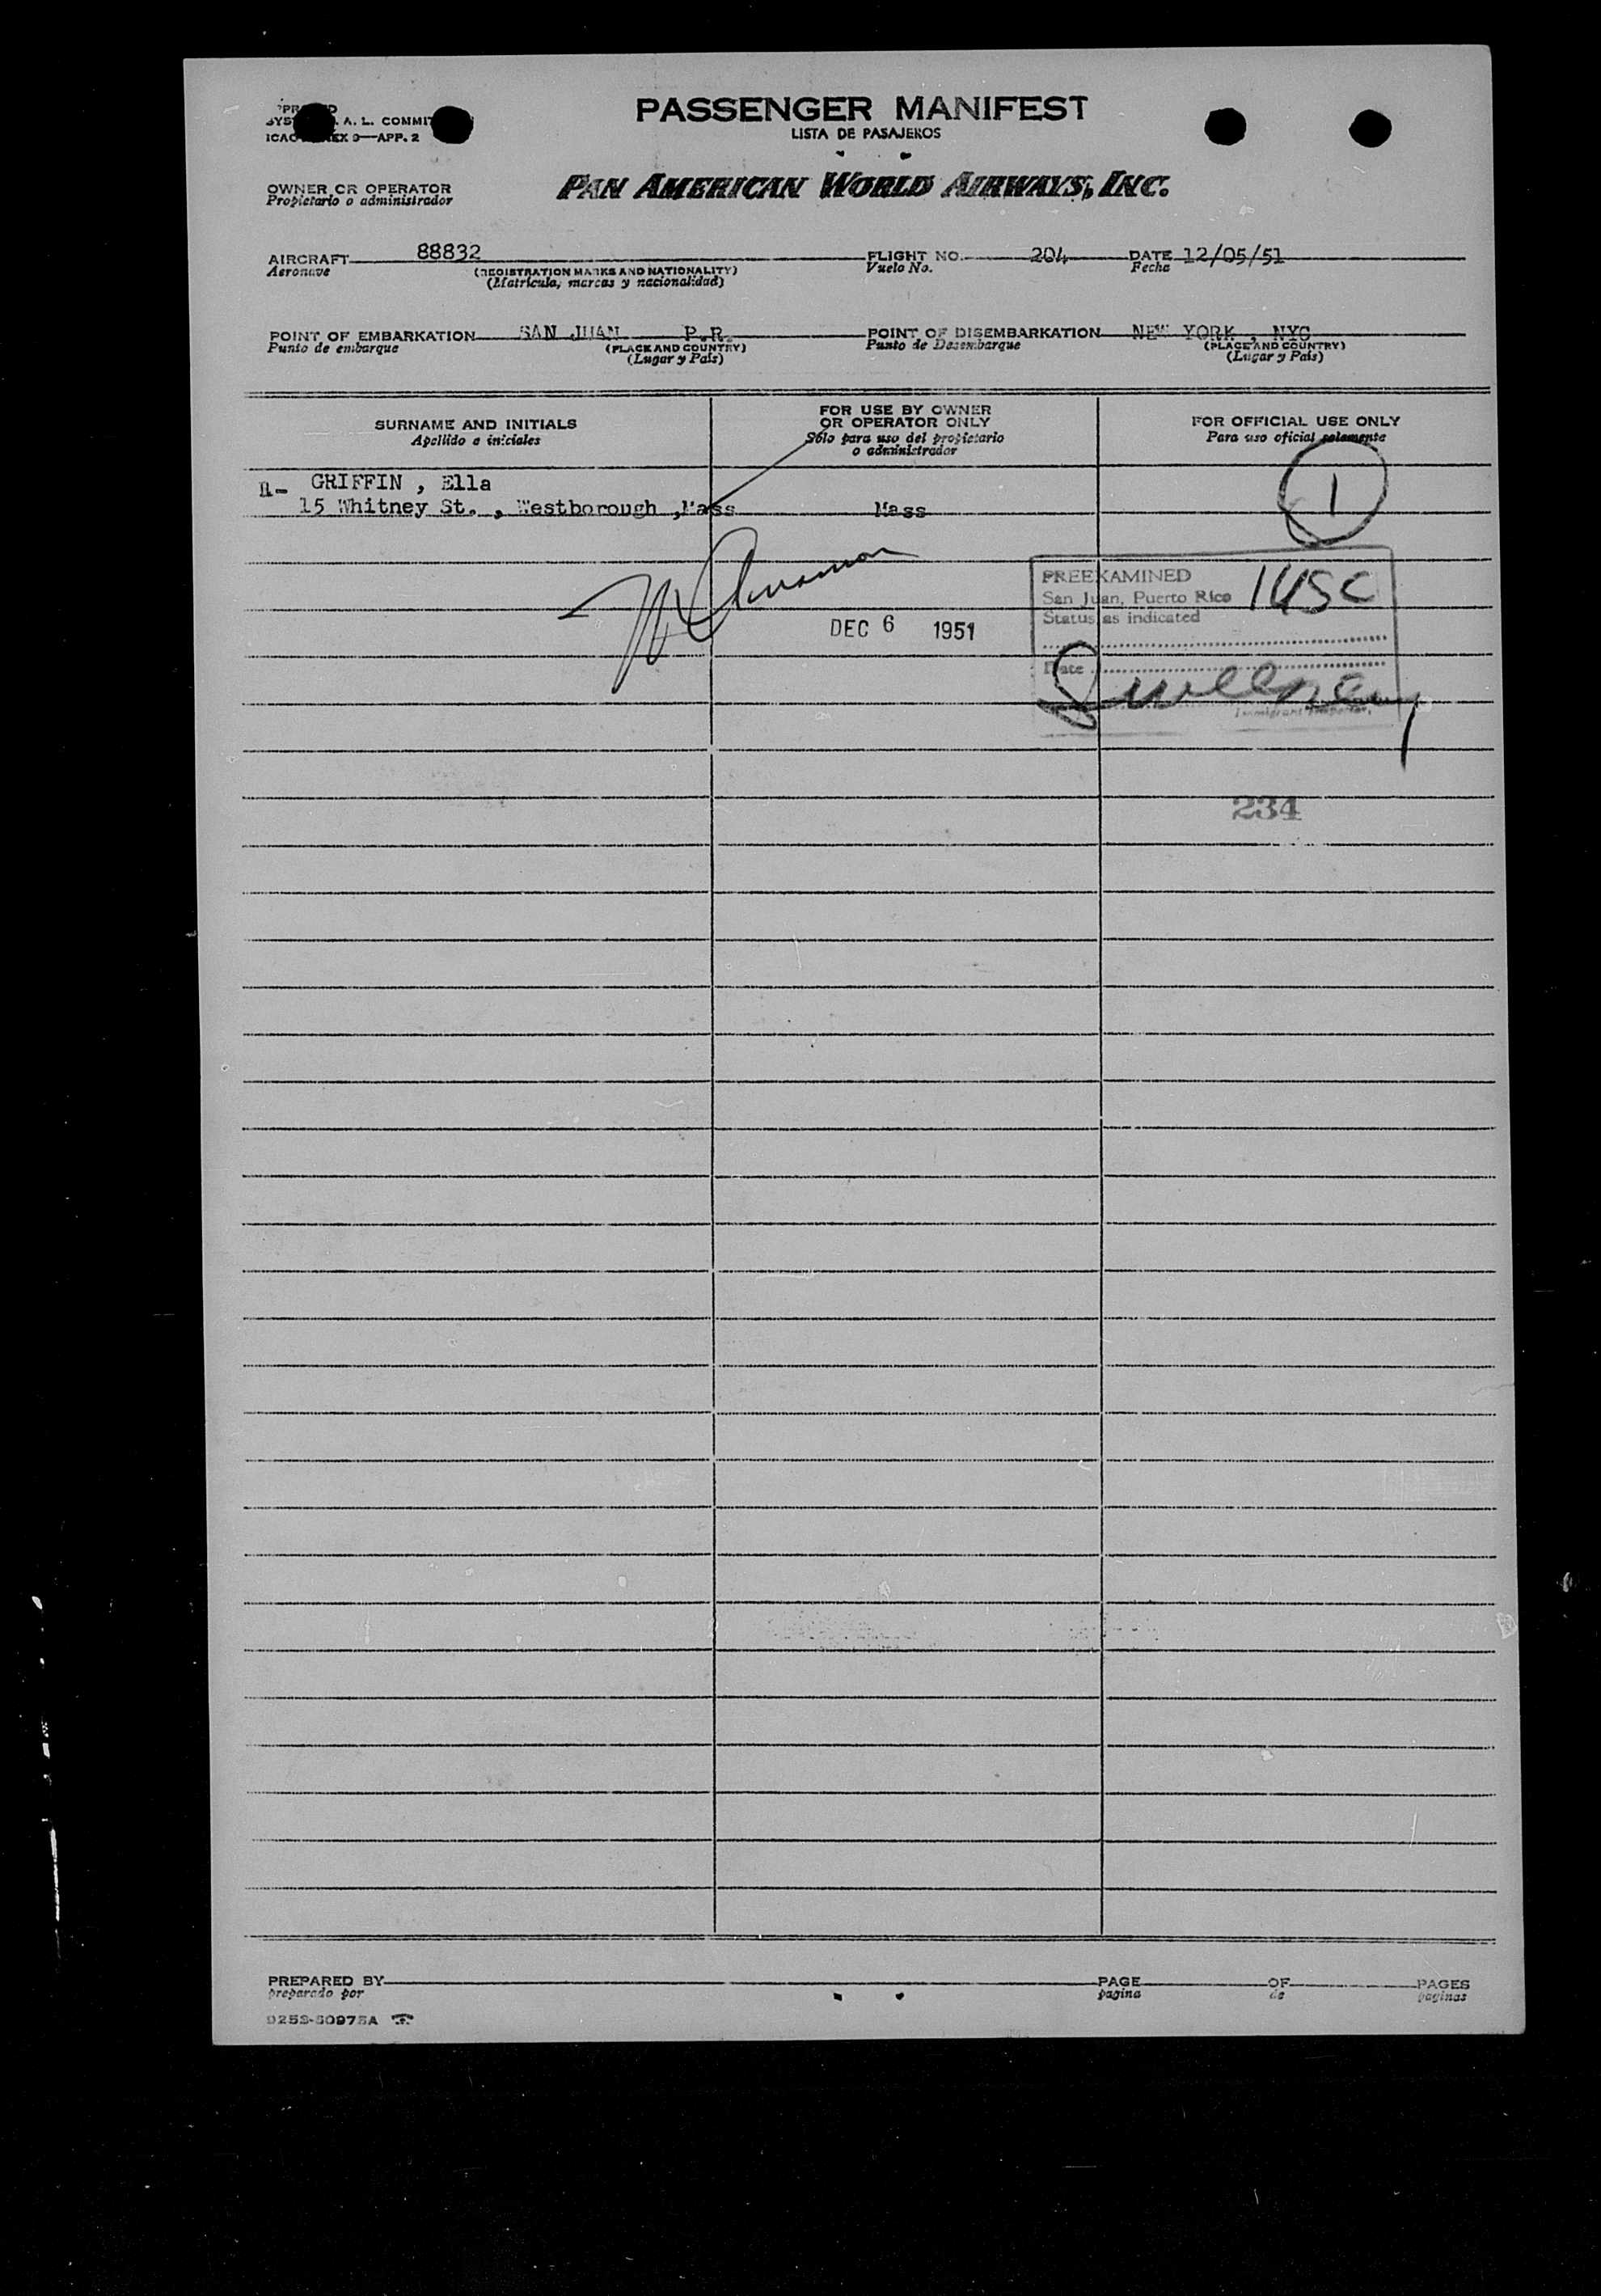 PASSENGER MANIFEST
LISTA DE PASAJEROS
A. L. COMMIT
ICAO EX 9—APP. 2
OWNER OR OPERATOR
Propietario o administrador
PAN AMERICAN WORLD AIRWAYS, INC.
AIRCRAFT 88832 FLIGHT NO. 204 DATE 12/05/51
Aeronave (REGISTRATION MARKS AND NATIONALITY) Vuelo No. Fecha
(Matrícula, marcas y nacionalidad)
POINT OF EMBARKATION SAN JUAN P.R. POINT OF DISEMBARKATION NEW YORK , NYC
Punto de embarque (PLACE AND COUNTRY) Punto de Desembarque (PLACE AND COUNTRY)
(Lugar y País) (Lugar y País)
SURNAME AND INITIALS FOR USE BY OWNER OR OPERATOR ONLY FOR OFFICIAL USE ONLY
Apellido e iniciales Sólo para uso del propietario o administrador Para uso oficial solamente
GRIFFIN , Ella 1
15 Whitney St. , Westborough ,Mass Mass
PREEXAMINED
San Juan, Puerto Rico 1USC
Status as indicated
DEC 6 1951
Date
Immigrant Inspector
234
PREPARED BY PAGE OF PAGES
preparado por pagina de paginas